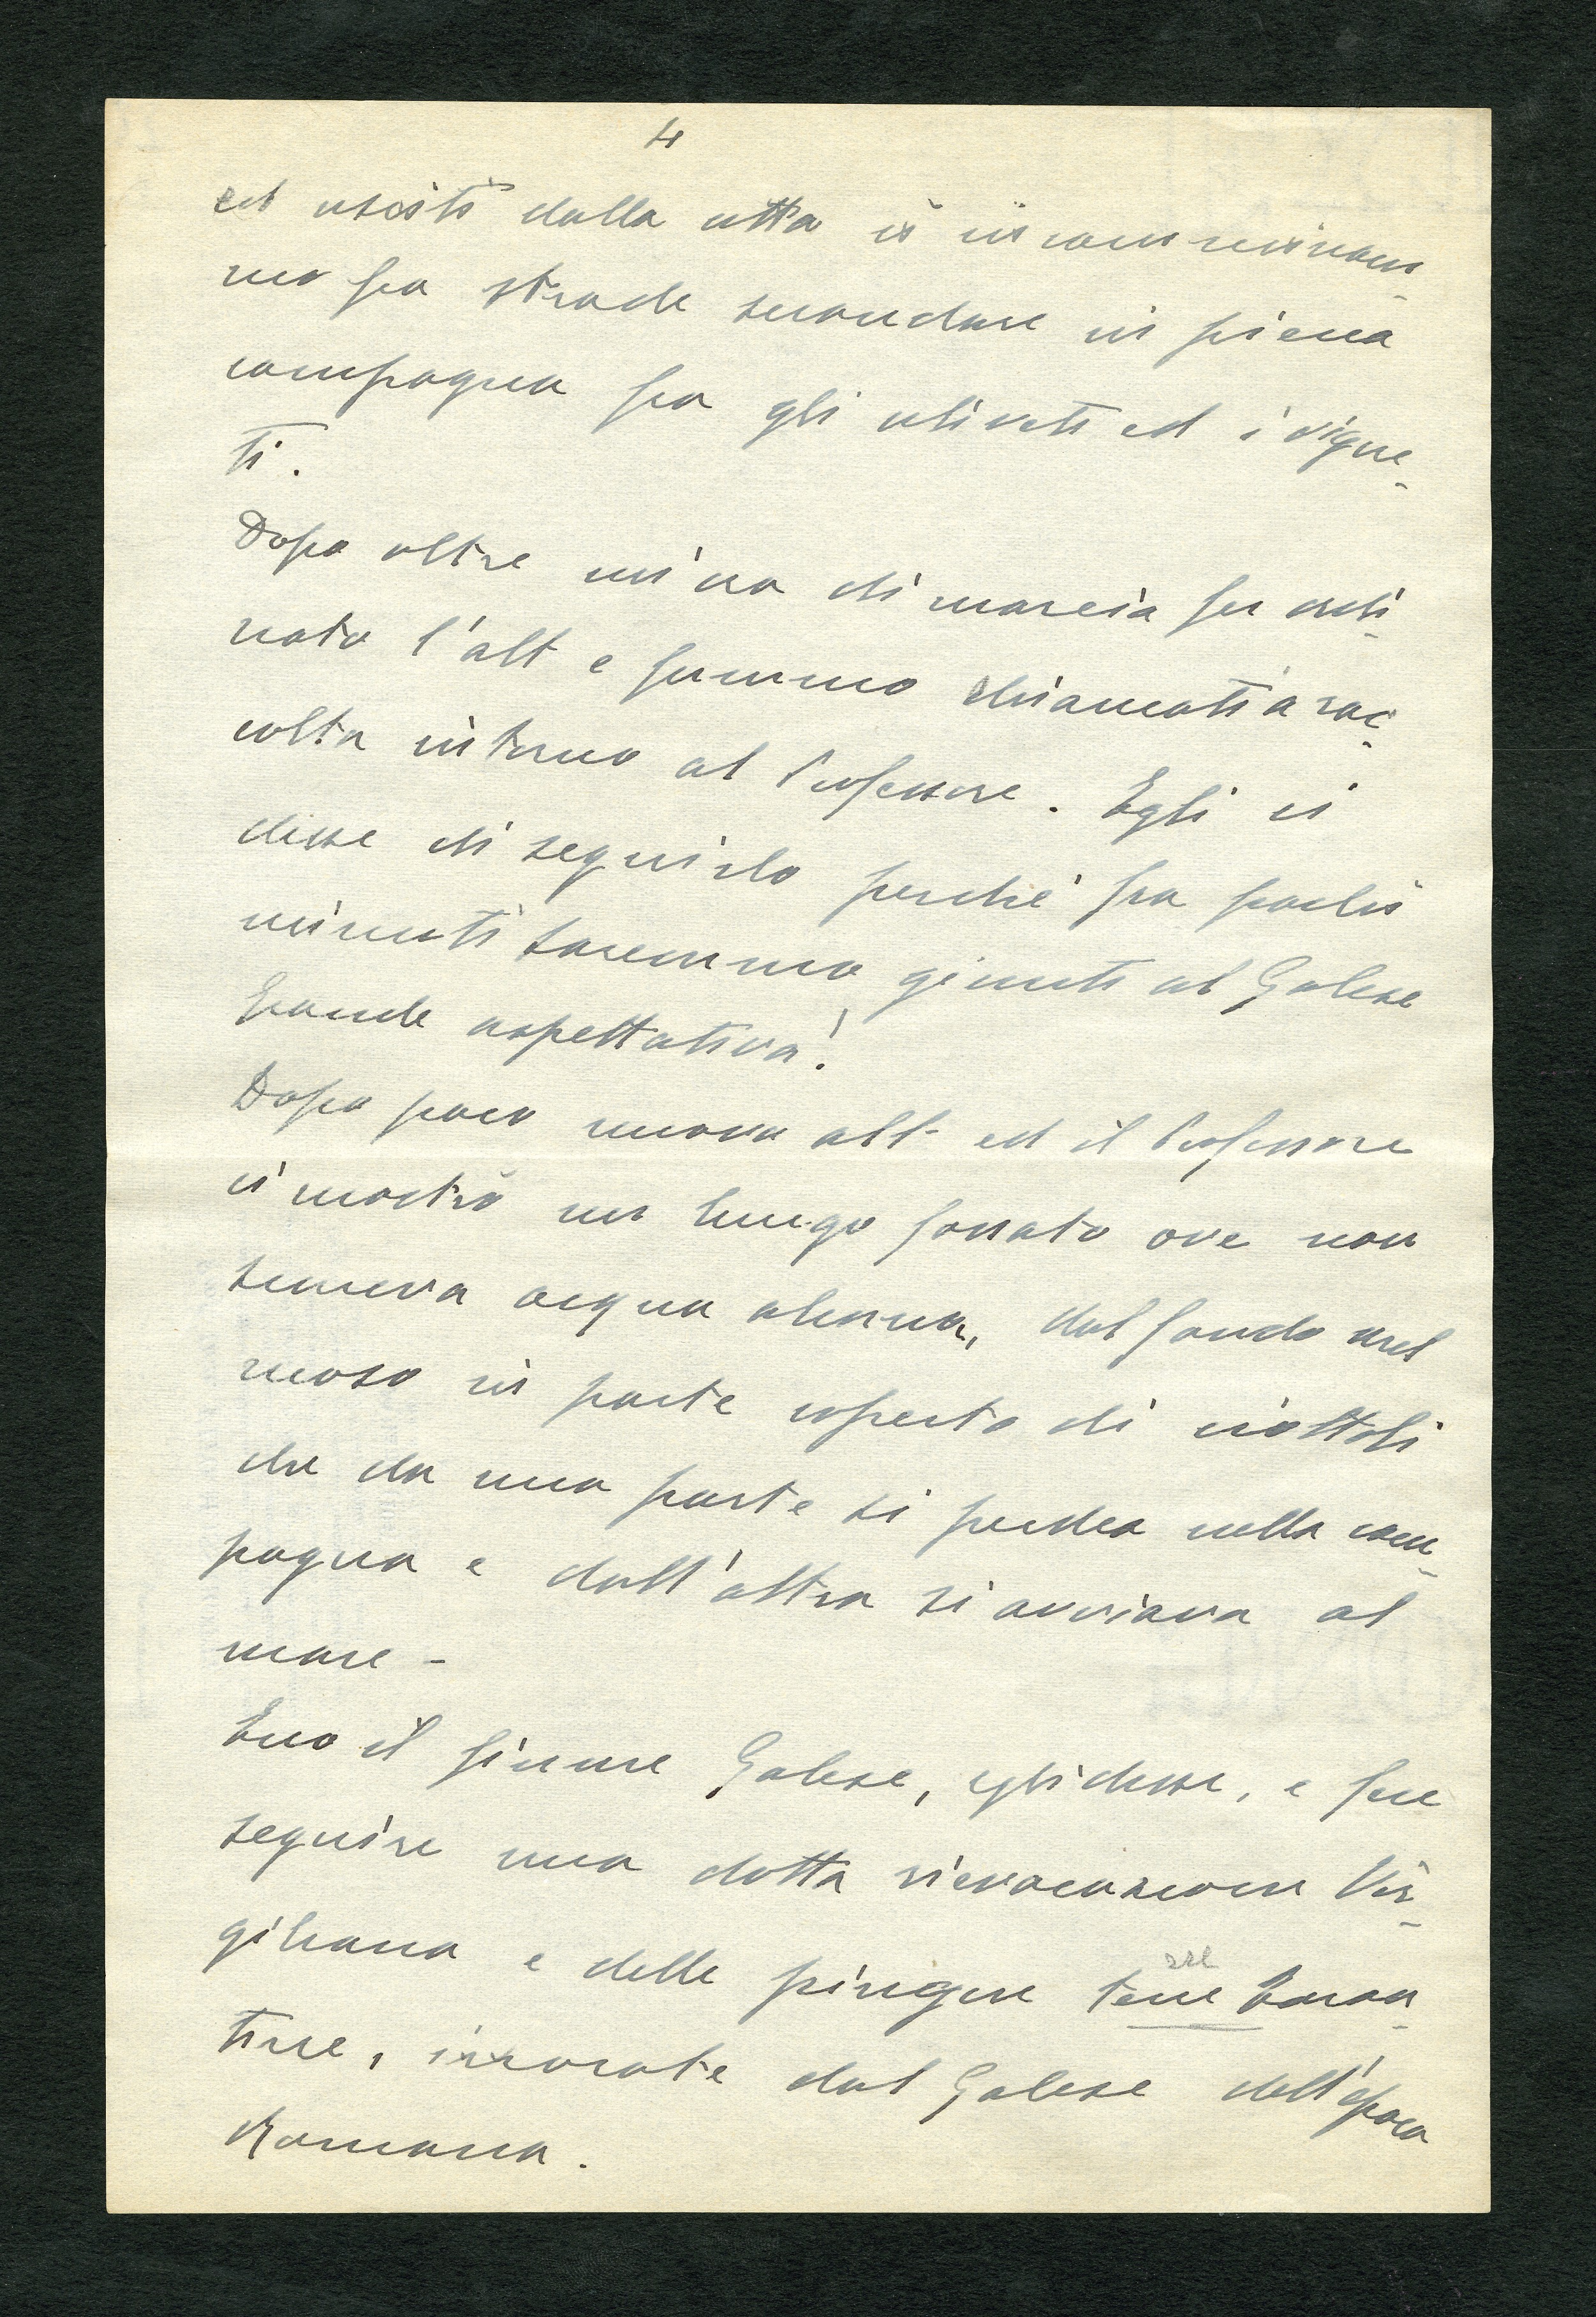 4
ed usciti dalla città ci incamminam-
mo fra strade secondarie in piena
campagna fra gli uliveti ed i vigne-
ti.
Dopo oltre un'ora di marcia fu ordi-
nato l'alt e fummo chiamati a rac-
colta intorno al Professore. Egli ci
disse di seguirlo perchè fra pochi
minuti saremmo giunti al Galeso
Grande aspettativa!
Dopo poco nuovo alt ed il Professore
ci mostrò un lungo fossato ove non
scorreva acqua alcuna, dal fondo
in parte coperto di ciottoli
che da una parte si perdea nella cam-
pagna e dall'altra si avviava al
mare -
Ecco il fiume Galeso, egli disse, e fece
seguire una dotta rievocazione Vir-
giliana e delle pingue terre Taran-
rre
tine, irrorate dal Galeso dell'epoca
Romana.